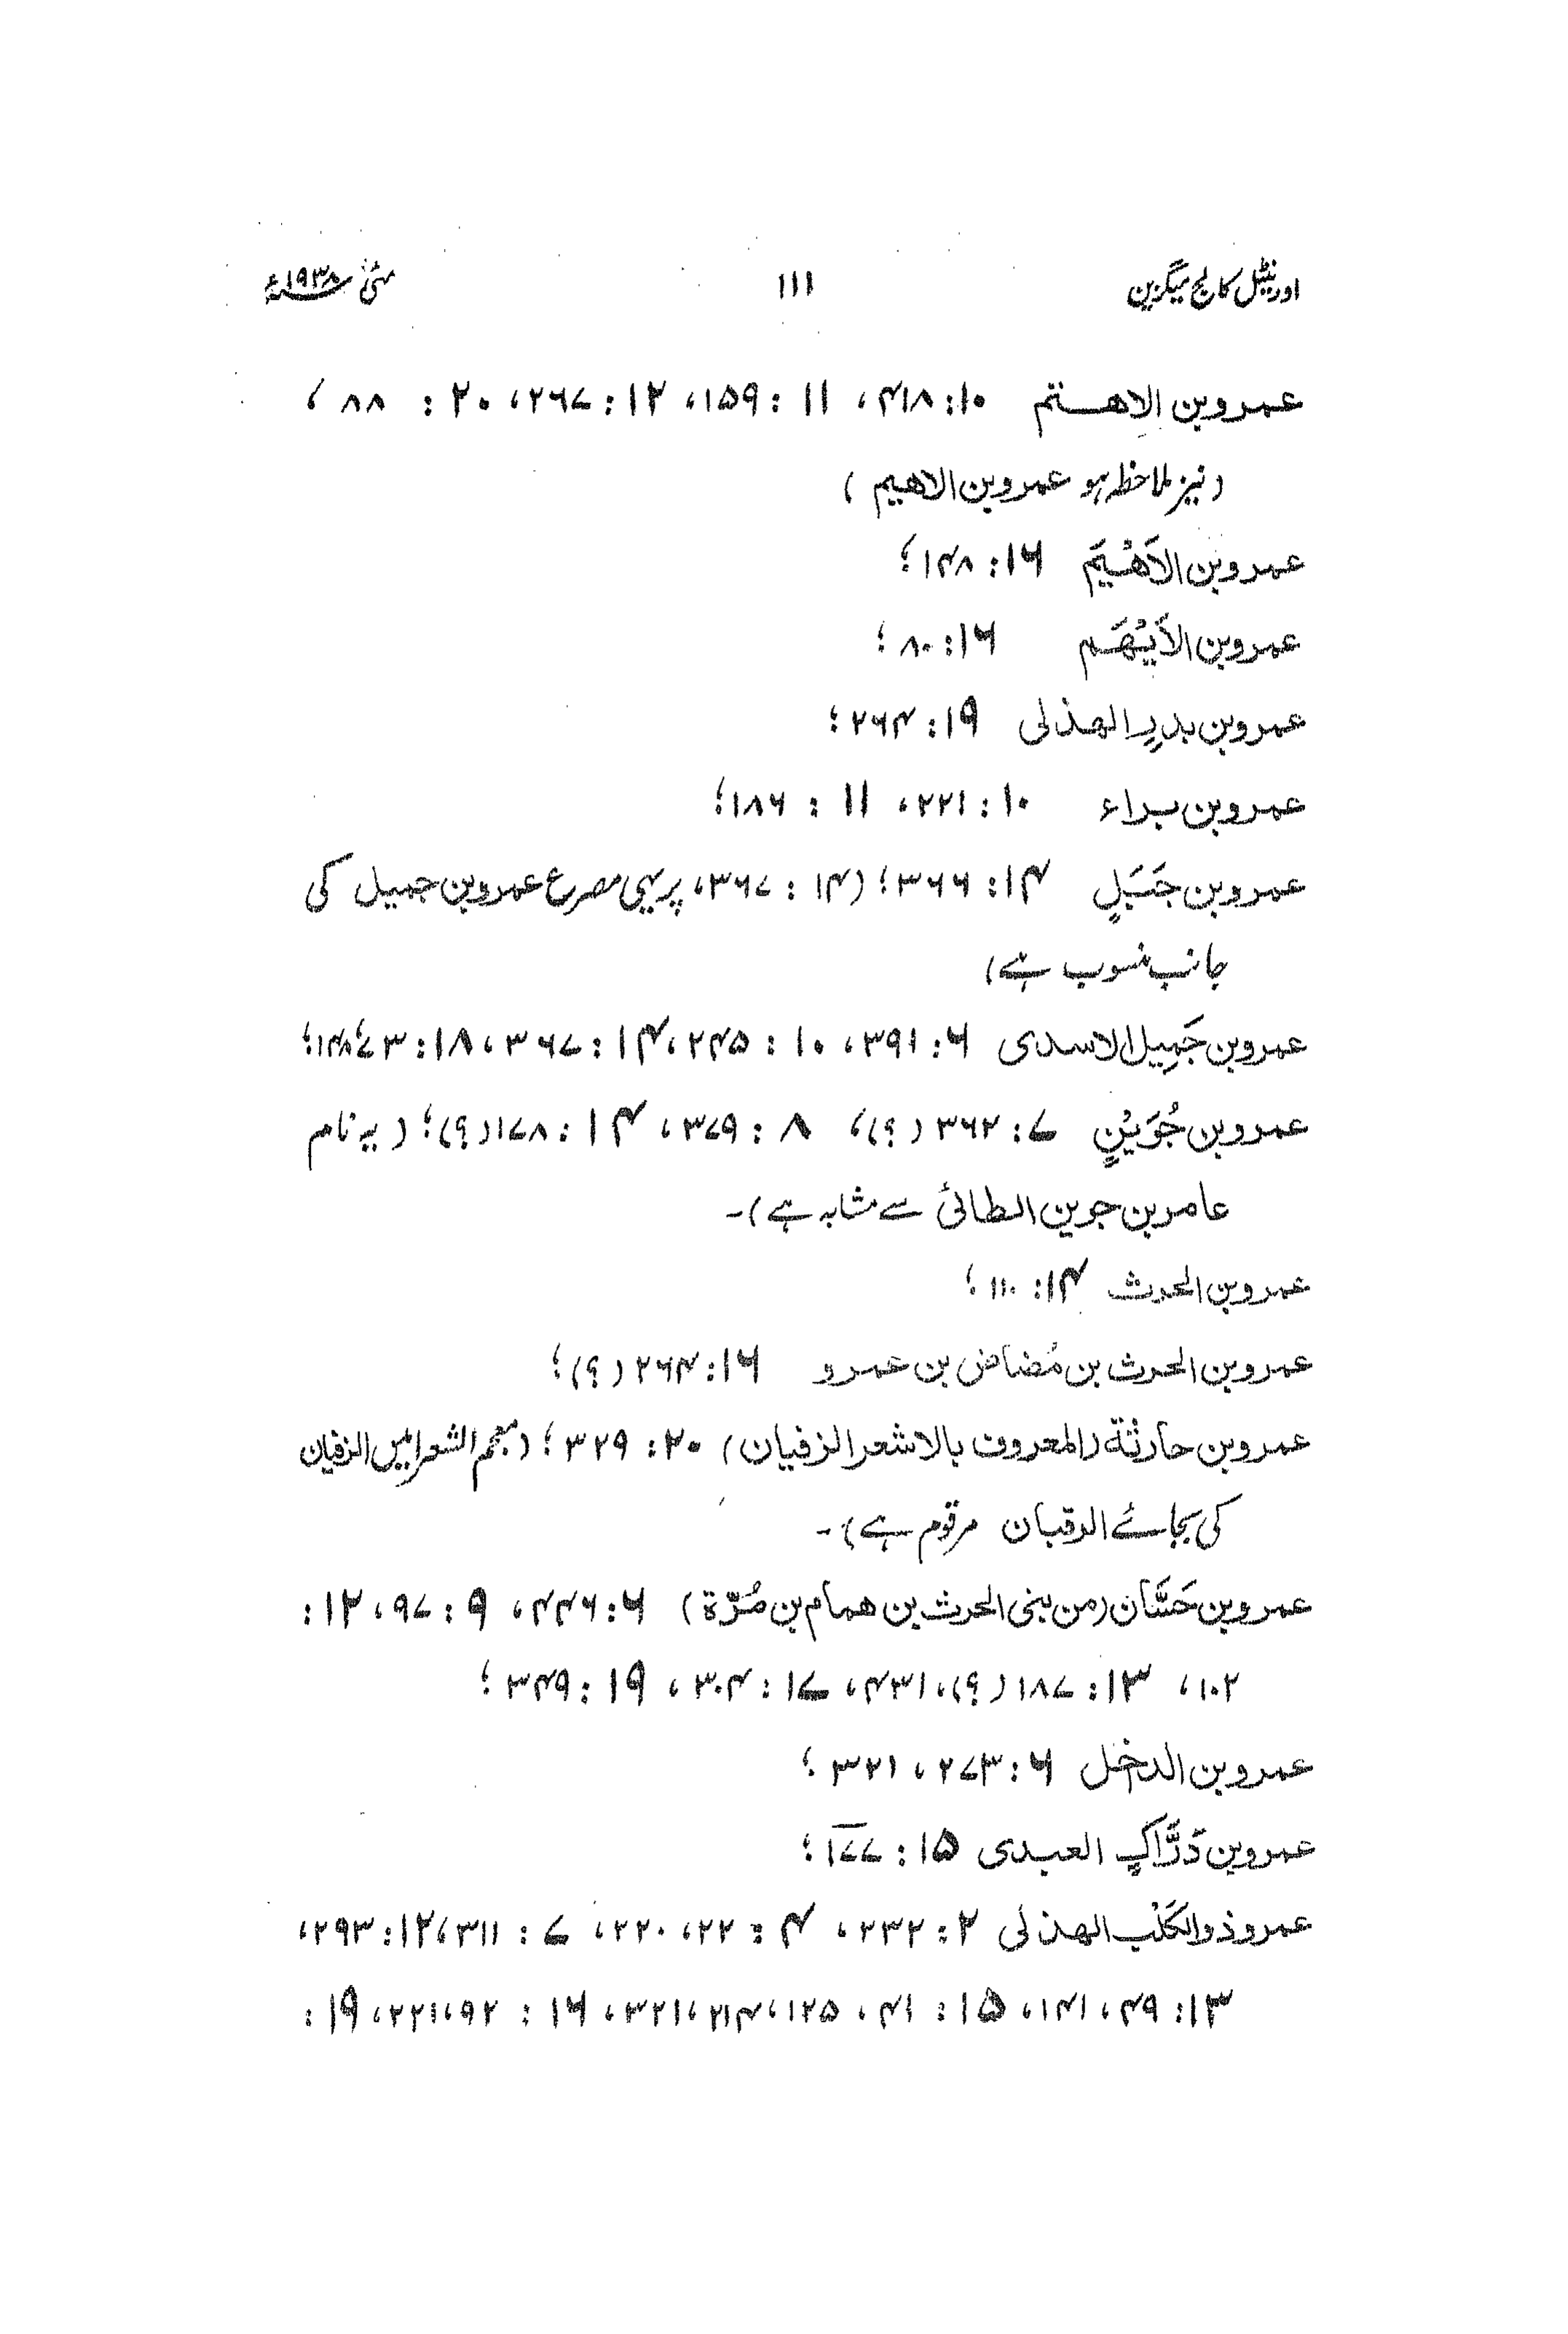 اورنٹیل کالج میگزین ۱۱۱ مئی ۱۹۳۸ء
عمرو بن الاهتم ۱۰: ۴۱۸، ۱۱: ۱۵۹، ۱۲: ۲۶۷، ۲۰: ۸۸،
(نیز ملاحظہ ہو عمرو بن الاهیم)
عمرو بن الاَهْیَم ۱۶: ۱۴۸؛
عمرو بن الاَیْهَم ۱۶: ۸۰؛
عمرو بن بدرٍ الهذلی ۱۹: ۲۶۴؛
عمرو بن براء ۱۰: ۲۲۱، ۱۱: ۱۸۶؛
عمرو بن جَبَلٍ ۱۴: ۳۶۶؛ (۱۴: ۳۶۷، پر یہی مصرع عمرو بن جمیل کی
جانب منسوب ہے)
عمرو بن جَمِیل الاسدی ۶: ۳۹۱، ۱۰: ۲۴۵، ۱۴: ۳۶۷، ۱۸: ۳۷، ۱۴۸؛
عمرو بن جُوَیْنٍ ۷: ۳۶۲ (؟)، ۸: ۳۷۹، ۱۴: ۱۷۸ (؟)؛ (یہ نام
عامر بن جوین الطائی سے مشابہ ہے)۔
عمرو بن الحرث ۱۴: ۱۱۰؛
عمرو بن الحرث بن مُضاض بن عمرو ۱۶: ۲۶۴ (؟)؛
عمرو بن حارثة (المعروف بالاشعر الزفیان) ۲۰: ۳۲۹؛ (معجم الشعرا میں الزفیان
کی بجائے الرقبان مرقوم ہے)۔
عمرو بن حَسَّان (من بنی الحرث بن همام بن مُرّة) ۶: ۴۴۶، ۹: ۹۷، ۱۲:
۱۰۲، ۱۳: ۱۸۷ (؟)، ۴۳۱، ۱۷: ۳۰۴، ۱۹: ۳۴۹؛
عمرو بن الدخل ۶: ۲۷۳، ۳۲۱؛
عمرو بن دَرَّاكٍ العبدی ۱۵: ۱۷۷؛
عمرو ذو الكَلْب الهذلی ۲: ۲۳۲، ۴: ۲۲، ۲۲۰، ۷: ۳۱۱، ۱۲: ۲۹۳،
۱۳: ۴۹، ۱۴۱، ۱۵: ۴۱، ۱۲۵، ۲۱۴، ۳۲۱، ۱۶: ۹۲، ۲۲۱، ۱۹: